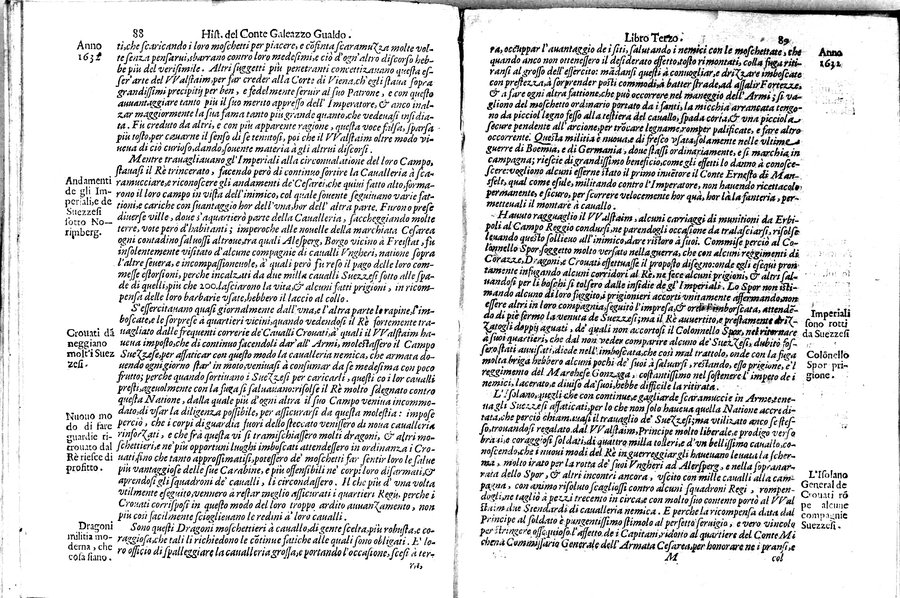 88 Hist. del Conte Galeazzo Gualdo.
Anno
1632
ti, che scaricando i loro moschetti per piacere, e cõsinta scaramuzza molte vol-
te senza pensarui, sbarrano contro loro medesimi, e ciò d'ogn'altro discorso heb-
be più del verisimile. Altri suggetti più penetranti concettizauano questa es-
ser'arte del VValstaim, per far creder alla Corte di Vienna, ch'egli staua sopra
grandissimi precipity per ben, e fedelmente seruir al suo Patrone, e con questo
auuantaggiare tanto più il suo merito appresso dell'Imperatore, & anco inal-
zar maggiormente la sua fama tanto più grande quanto, che vedeuasi insidia-
ta. Fu creduto da altri, e con più apparente ragione, questa voce finsa, sparsa
più tosto, per cauarne il senso di se tenutosi, poi che il VValstaim oltre modo vi-
ueua di ciò curioso, dando souente materia à gli altrui discorsi.
Mentre trauagliauano gl'Imperiali alla circonualatione del loro Campo,
stauasi il Rè trincerato, facendo però di continuo sortire la Caualleria à sca-
ramucciare, e riconoscere gli andamenti de' Cesarei, che quiui fatto alto, forma-
rono il loro campo in vista dell'inimico, col quale souente seguiuano varie fat-
tioni, e cariche con suantaggio hor dell'vna, hor dell'altra parte. Furono prese
diuerse ville, doue s'aquartierò parte della Caualleria, saccheggiando molte
terre, vote però d'habitanti; imperoche alle nouelle della marchiata Cesarea
ogni contadino saluossi altroue, tra quali Alesperg, Borgo vicino à Frestat, fu
insolentemente visitato d'alcune compagnie di caualli Vngheri, natione sopra
l'altre seuera, e incompassioneuole, à quali però fu reso il pago delle loro com-
messe estorsioni, perche incalzati da due mille caualli Suezzesi sotto alle spa-
de di quelli, più che 200. lasciarono la vita, & alcuni fatti prigioni, in ricom-
pensa delle loro barbarie vsate, hebbero il laccio al collo.
Andamenti
de gli Im-
periali, e de
Suezzesi
sotto No-
rimberg.
S'essercitauano quasi giornalmente dall'vna, e l'altra parte le rapine, l'im-
boscate, e le sorprese à quartieri vicini, quando vedendosi il Rè fortemente tra-
uagliato dalle frequenti correrie de Caualli Crouati, à quali il VValstaim ha-
ueua imposto, che di continuo facendoli dar'all'Armi, molestassero il Campo
Suezzese, per affaticar con questo modo la caualleria nemica, che armata do-
uendo ogni giorno star'in moto, veniuasi à consumar da se medesima con poco
frutto; perche quando sortiuano i Suezzesi per caricarli, questi co i lor caualli
presti, ageuolmente con la fuga si saluauano; risolse il Rè molto sdegnato contro
questa Natione, dalla quale più d'ogni altra il suo Campo veniua incommo-
dato, di vsar la diligenza possibile, per assicurarsi da questa molestia: impose
perciò, che i corpi di guardia fuori dello steccato venissero di noua caualleria
rinforzati, e che frà questa vi si tramischiassero molti dragoni, & altri mo-
schettieri, e ne' più opportuni luoghi imboscati attendessero in ordinanza i Cro-
uati, fino che tanto approssimatisi, potessero de' moschetti far sentir loro le salue
più vantaggiose delle sue Carabine, e più offensibili ne' corpi loro disarmati, &
aprendosi gli squadroni de' caualli, li circondassero. Il che più d'vna volta
vtilmente eseguito, vennero à restar meglio assicurati i quartieri Regij, perche i
Crouati corrisposti in questo modo del loro troppo ardito auuanzamento, non
più così facilmente scioglieuano le redini à loro caualli.
Crouati dã
neggiano
molti Suez
zesi.
Nuouo mo
do di fare
guardie ri-
trouato dal
Rè riesce di
profitto.
Sono questi Dragoni moschettieri à cauallo, di gente scelta, più robusta, e co-
raggiosa, che tali li richiedono le cõtinue fatiche alle quali sono obligati. E' lo-
ro officio di spalleggiare la caualleria grossa, e portando l'occasione, scesi à ter-
Dragoni
militia mo-
derna, che
cosa siano.
Libro Terzo. 89
Anno
1632
ra, occuppar l'auantaggio de i siti, salutando i nemici con le moschettate, che
quando anco non ottenessero il desiderato effetto, tosto rimontati, colla fuga riti-
ransi al grosso dell'essercito: mãdansi questi à conuogliar, e drizzare imboscate
con prestezza, à sorprender posti commodi, à batter strade, ad assalir Fortezze,
& a fare ogni altra fattione, che può occorrere nel maneggio dell'Armi; si va-
gliono del moschetto ordinario portato da i fanti, la micchia arrancata tengo-
no da picciol legno fesso alla testiera del cauallo, spada coria, & vna picciola
secure pendente all'arcione, per trõcare legname, romper palificate, e fare altro
occorrente. Questa militia è nuoua, e di fresco vsata solamente nelle vltime
guerre di Boemia, e di Germania, doue stassi ordinariamente, e si marchia in
campagna; riesce di grandissimo beneficio, come gli effetti lo danno à conosce-
scere: vogliono alcuni essere stato il primo inuētore il Conte Ernesto di Man-
sfelt, qual come esule, militando contro l'Imperatore, non hauendo ricettacolo
permanente, e sicuro, per scorrere velocemente hor quà, hor là la fanteria, per-
metteuali il montare à cauallo.
Hauuto ragguaglio il VValstaim, alcuni carriaggi di munitioni da Erbi-
poli al Campo Reggio condursi, ne parendogli occasione da tralasciarsi, risolse
leuando questo sollieuo all'inimico, dare ristoro à suoi. Commise perciò al Co-
lonnello Spor, soggetto molto versato nella guerra, che con alcuni reggimenti di
Corazze, Dragoni, e Crouati effettuasse il proposto disegno: onde egli eseguì pron-
tamente infugando alcuni corridori al Rè, ne fece alcuni prigioni, & altri sal-
uandosi per li boschi si tolsero dalle insidie de gl'Imperiali. Lo Spor non isti-
mando alcuno di loro fuggito, i prigionieri accorti vnitamente affermando, non
essere altri in loro compagnia, seguitò l'impresa, & ordì l'imboscata, attenden-
do di piè fermo la venuta de Suezzesi; ma il Rè auuertito, e prestamente driz-
zatogli doppij aguati, de' quali non accortosi il Colonnello Spor, nel ritornare
à suoi quartieri, che dal non veder comparire alcuno de' Suezzesi, dubitò fos-
sero stati auuisati, diede nell'imboscata, che così mal trattolo, onde con la fuga
molta briga hebbero alcuni pochi de' suoi à saluarsi, restando, esso prigione, e'l
reggimento del Marchese Gonzaga, costantissimo nel sostenere l'impeto de i
nemici, lacerato, e diuiso da' suoi, hebbe difficile la ritirata.
Imperiali
sono rotti
da Suezzesi
Colõnello
Spor pri-
gione.
L'Isolano, quel che con continue, e gagliarde scaramuccie in Arme, tene-
ua gli Suezzesi affaticati, per lo che non solo haueua quella Natione accredi-
tata, che perciò chiamauasi il trauaglio de' Suezzesi; ma vtilizato anco se stes-
so, trouandosi regalato, dal VValstaim, Principe molto liberale, e prodigo verso
braui, e coraggiosi soldati, di quattro milla tolleri, e d'vn bellissimo cauallo, co-
noscendo, che i nuoui modi del Rè in guerreggiar gli haueua leuata la scher-
ma, molto irato per la rotta de' suoi Vngheri ad Alersperg, e nella sopranar-
rata dello Spor, & altri incontri ancora, vscito con mille caualli alla cam-
pagna, con animo risoluto scagliossi contro alcuni squadroni Regi, rompen-
dogli, ne tagliò à pezzi trecento in circa, e con molto suo contento portò al VVal-
staim due Stendardi di caualleria nemica. E perche la ricompensa data dal
Principe al soldato è pungentissimo stimolo al perfetto seruigio, e vero vincolo
per stringere ossequioso l'affetto de i Capitani, ridotto al quartiere del Conte Mi
chena Commissario Generale dell'Armata Cesarea, per honorare ne i pransi, e
L'Isolano
General de
Crouati rõ
pe alcune
compagnie
Suezzesi.
M
col